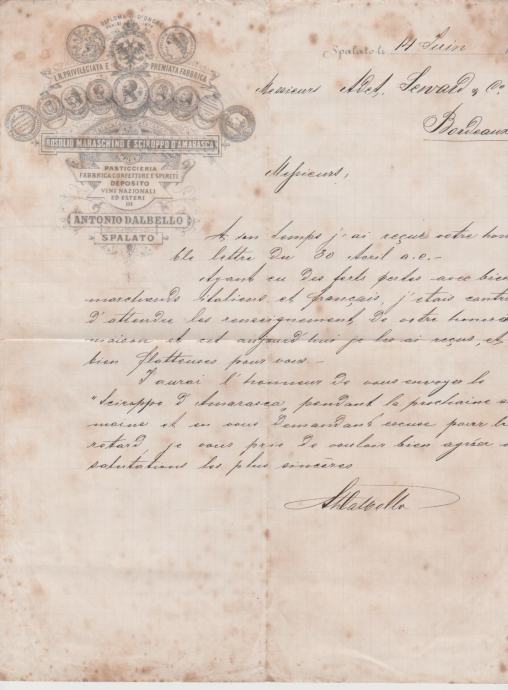 DIPLOMA D'ONORE
I.R. PRIVILEGIATA E PREMIATA FABBRICA
ROSOLIO MARASCHINO E SCIROPPO D'AMARASCA
PASTICCIERIA
FABBRICA CONFETTURE E SPIRITI
DEPOSITO
VINI NAZIONALI
ED ESTERI
DI
ANTONIO DALBELLO
SPALATO
Spalato li 14 Juin
Messieurs Adet, Seward & Co.
Bordeaux
Messieurs,
A son temps j'ai reçue votre hono
ble lettre du 30 Avril a.c.-
Ayant eu des forts pertes avec bien
marchands italiens et français, j'etais contr
d'attendre les renseignements de votre honor
maison et cet aujourd'hui je les ai reçus, et
bien flatteuses pour vous -
J'aurai l'honneur de vous envoyer le
"Sciroppo d'Amarasca" pendant la prochaine se
maine et en vous demandant excuse pour le
retard, je vous prie de vouloir bien agréer
salutations les plus sincères
ADalbello